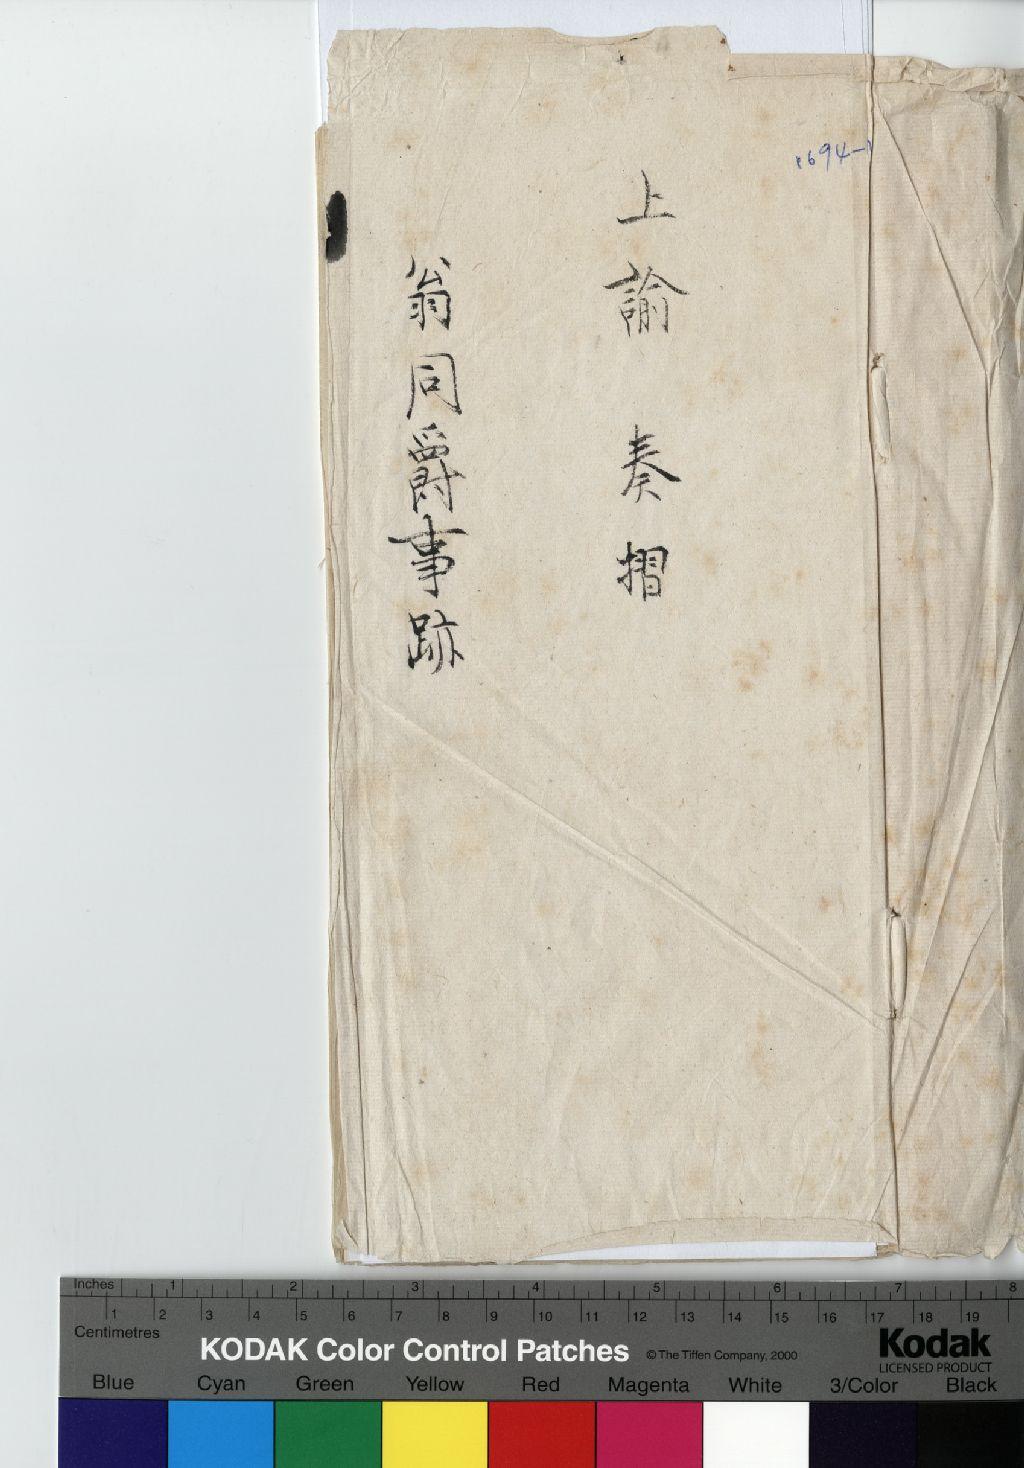 1694-1
上諭 奏摺
翁同爵事跡
Inches 1 2 3 4 5 6 7 8
1 2 3 4 5 6 7 8 9 10 11 12 13 14 15 16 17 18 19
Centimetres
KODAK Color Control Patches © The Tiffen Company, 2000 Kodak
LICENSED PRODUCT
Blue Cyan Green Yellow Red Magenta White 3/Color Black